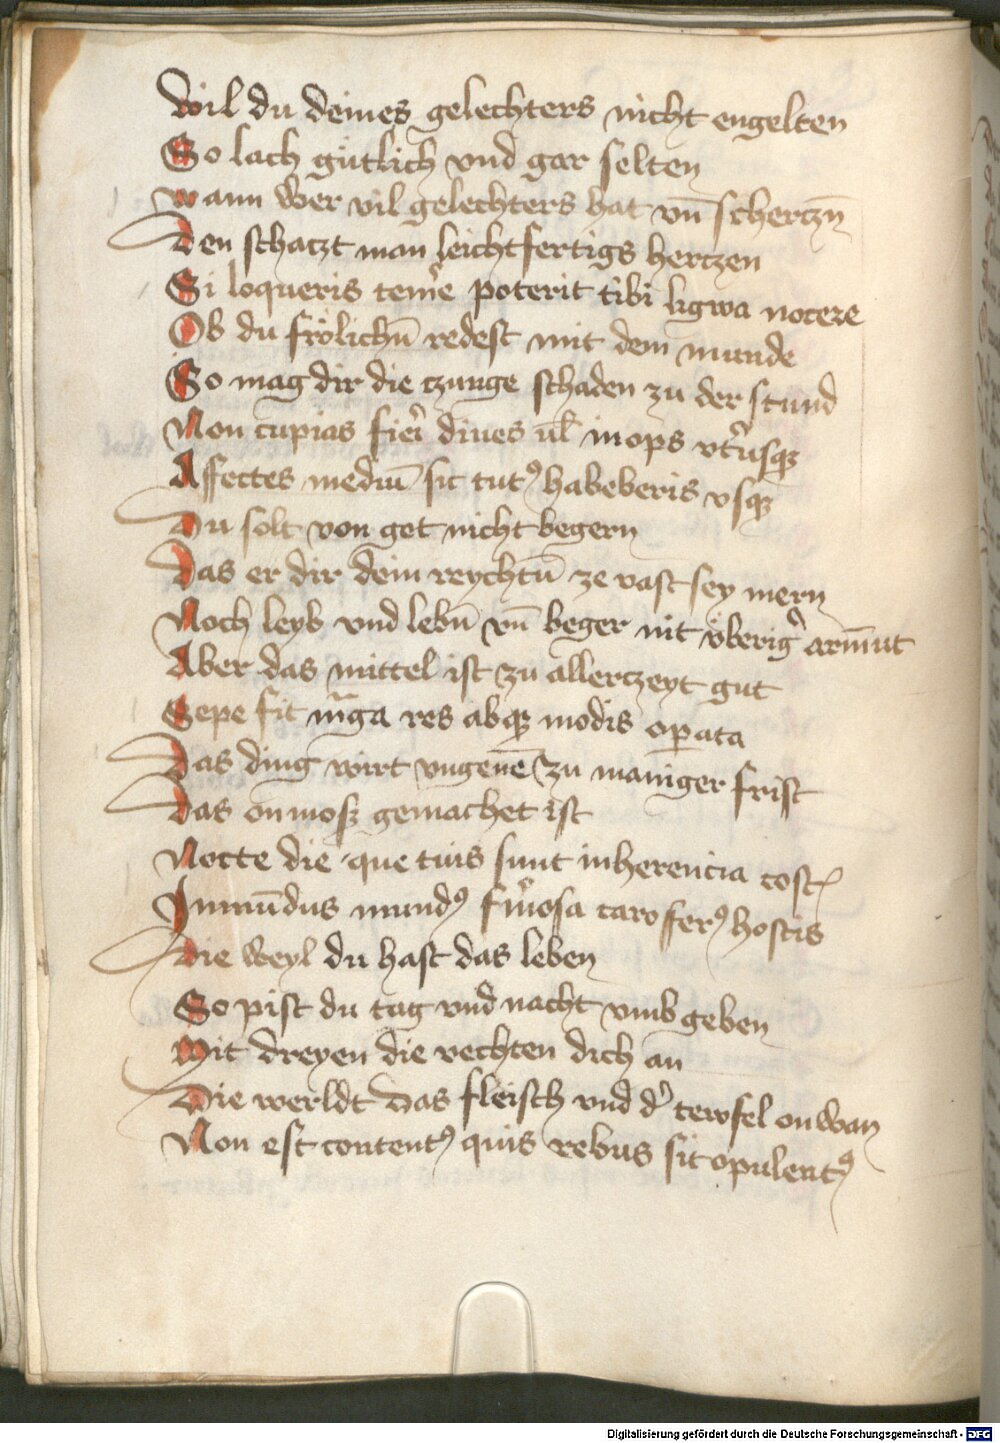 Wil du deines gelechters nicht engelten
So lach gütlich vnd gar selten
wann wer vil gelechters hat vn̄ schertzn̄
Den schatzt man leichtfertigs hertzen
Si loqueris temͤe poterit tibi ligwa nocere
Ob du frölichn̄ redest mit dem munde
So mag dir die tzunge schaden zu der stund
Non cupias fieri diues ul̄ inops vtrusqꝫ
Affectes mediū sic tutꝰ habeberis vsqꝫ
Du solt von got nicht begern
Das er dir dein reychtū ze vast sey mern
Noch leyb vnd lebn̄ vn̄ beger nit vͤberigͦ armut
Aber das mittel ist zu allertzeyt gut
Sepe fit īn̄ga res absqꝫ modis operata
Das ding wirt vngenē zu maniger frist
Das on mosz gemachet ist
Nocte die que tuis sunt inherencia cost
Inmūdus mundꝰ fͦmosa caro ferꝰ hostis
Die weyl du hast das leben
So pist du tag vnd nacht vmb geben
Mit dreyen die vechten dich an
Die werldt das fleisch vnd dͦ tewfel on wan
Non est contentꝰ quis rebus sit opulentꝰ
Digitalisierung gefördert durch die Deutsche Forschungsgemeinschaft - DFG